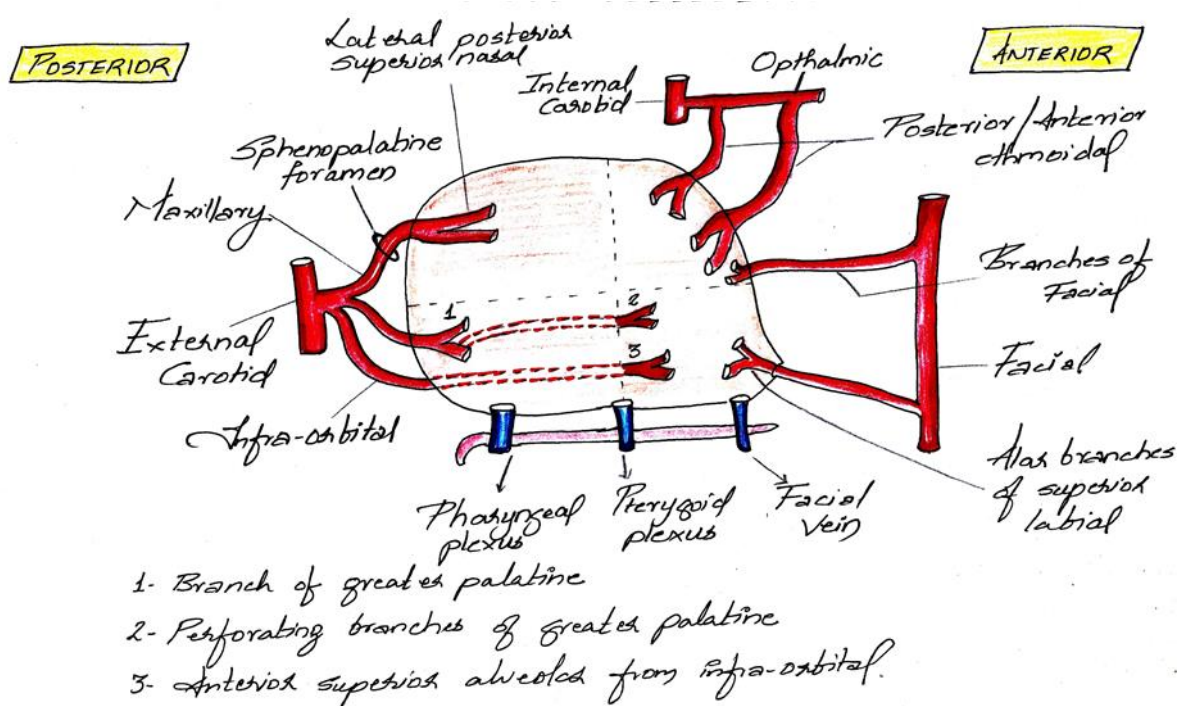 POSTERIOR
Lateral posterior
superior nasal
Internal
Carotid
Opthalmic
ANTERIOR
Posterior/Anterior
ethmoidal
Sphenopalatine
foramen
Maxillary
External
Carotid
Infra-orbital
Branches of
Facial
Facial
Alar branches
of superior
labial
1
2
3
Pharyngeal
plexus
Pterygoid
plexus
Facial
vein
1- Branch of greater palatine
2- Perforating branches of greater palatine
3- Anterior superior alveolar from infra-orbital.